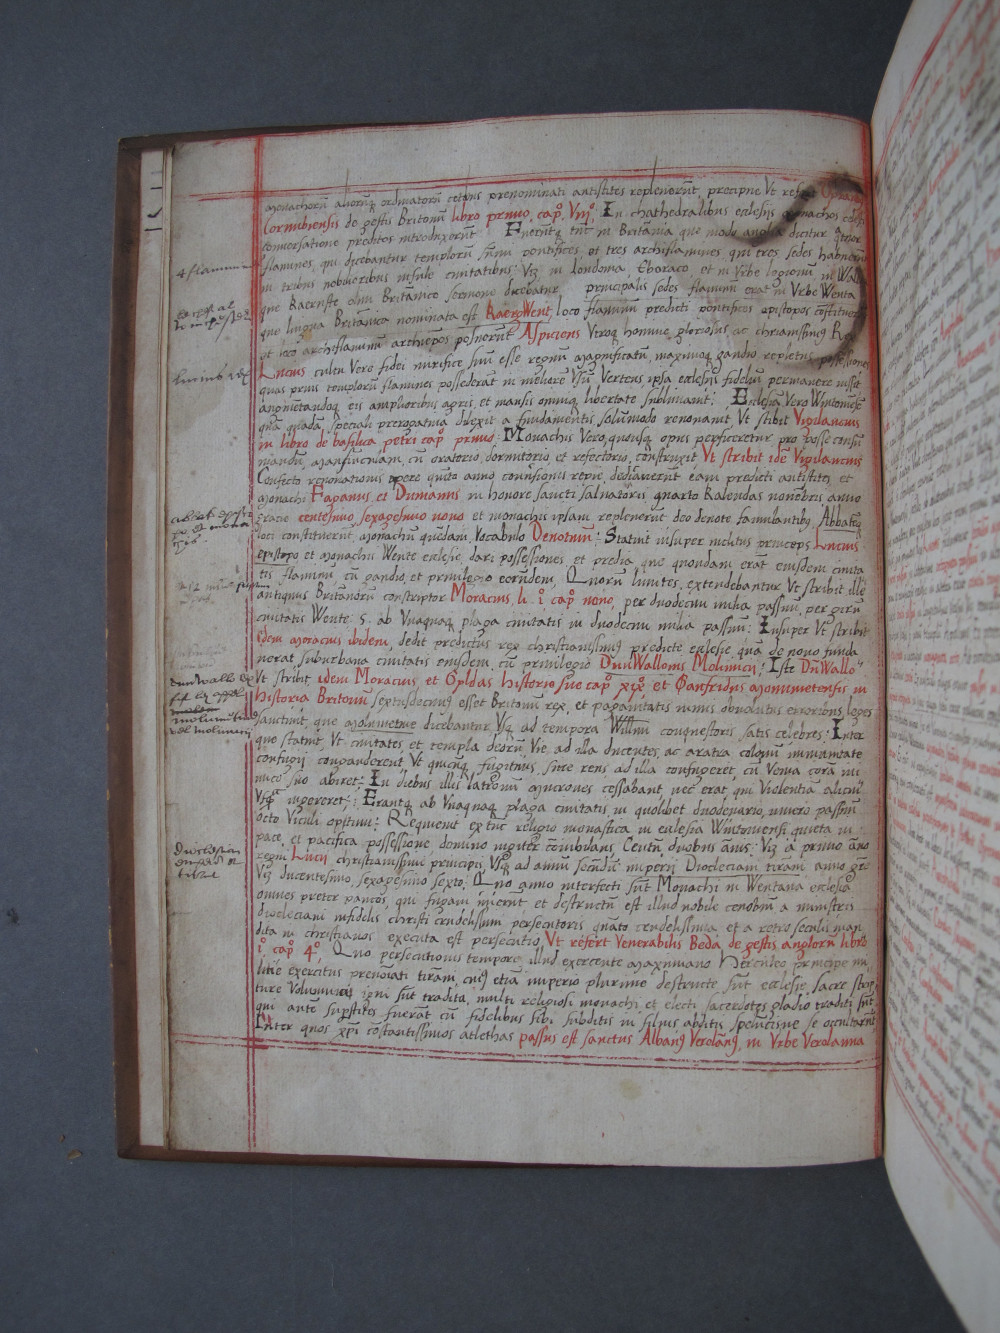 monachorū aliorūq ordinatorū cetus prenominati antistites replenerūt, precipue Vt refert
Cornubiensis de gestis Britonū libro primo, capº, Viijº, In chathedralibus eclesijs monachos
conversatione preditos introduxerūt : Fuerūtq tūc in Britānia que modo anglia dicitur
flamines, qui dicebantur templorū sūmi pontifices et tres archiflamines qui tres sedes habuerūt
in tribus nobilioribus insule civitatibus : Viz in londonia, Eboraco, et in Vrbe legionū in
que Kaeruske olim Britānico sermone dicebatur. principalis sedes flaminū erat in Vrbe Wenta
que lingua Britānica nominata est KaergWent, loco flaminū predicti pontifices episcopos cōstituerūt
et loco archiflaminū archiepos posuerūt Aspiciens Verºq homine gloriosus ac christianissimus Rex
Lucius cultū Vere fidei mirifice sūū esse regnū magnificatū, maximoq gaudio repletus possessiones
quas prius templorū flamines possederāt in meliorē Vsū Vertens ipsa eclesijs fidelium permanere iussit
augmentandoq eis amplioribus agris, et mansis omniq libertate sublimauit : Eclesiā Vero Wintoniēsē
quā quadā speciali prerogatiua dilexit a fundamentis solūmodo renouauit, Vt scribit Vigilancius
in libro de basilica petri capº primo : Monachis Vero, quousq opus perficeretur, pro posse
mandū, mansiūculam, cū oratorio, dormitorio, et refectorio, cōstruxit Vt scribit idē Vigilancius
Cōfecto renouationis opere quīto anno conuersionis regie, dedicauerūt eam predicti antistites, et
monachi Faganus, et Dumanus in honore sancti saluatoris quarto Kalendas nouēbris anno
gracie centesimo, sexagesimo nono et monachis ipsam replenerūt deo deuote famulantibq, Abbatēq
loci constituerūt, monachū quēdam, Vocabulo Denotum : Statuit insuper inclitus princeps Lucius
episcopo et monachis Wente eclesie, dari possessiones et predia, que quondam erāt eiusdem civita
tis flaminū, cū gaudio, et priuilegio eorūdem, Quorū limites, extendebantur Vt scribit ille
antiquus Britānorū conscriptor Moracius, li. iº capº nono, per duodecim milia passuū, per girū
civitatis Wente : s. ab Vnaquaq plaga civitatis in duodecim milia passuū : Insuper Vt scribit
idem moracius ibidem, dedit predictus rex christianissimus predicte eclesie, quā de nouo funda
uerat, suburbana civitatis eiusdem, cū priuilegio DūnWallonis Molinicij : Iste DūWallo
Vt scribit, idem Moracius et Gyldas historio sue capº xixº, et Ganfridus monumetensis in
historia Britonū sextusdecimus esset Britonū rex, et paganitatis nimis obuolutus erroribus, leges
sanctiuit, que molumetine dicebantur, Vsq ad tempora Willmi conquestoris satis celebres : Inter
que statuit, Vt civitates, et templa deorū, Vie, ad illa ducentes, ac aratra colonū imunitate
confugij congauderent Vt quicūq fugitiuus, siue reus ad illa confugeret, cū Venia corā ini
mico suo abiret : In diebus illis latronū mucrones cessabant, nec erat qui Violentiā alicui
Vsq ingereret : Erantq ab Vnaquaq plaga civitatis, in quolibet duodenario, numero passuū
octo Viculi opstiui : Requieuit ex tūc religio monastica in eclesia Wintoniensi quieta in
pace, et pacifica possessione domino iugiter cōmilitans Centū duobus ānis : Viz a primo āno
regni Lucij christianissimi principis, Vsq ad annū secūdū imperij Diocleciani tirāni anno
Viz ducentesimo, sexagesimo sexto : Quo anno interfecti sūt Monachi in Wentana eclesia
omnes preter paucos, qui fugam inierūt, et destructū est illud nobile cenobiū a ministris
diocleciani infidelis christi crudelissimi persecutoris quāto crudelissima et a retro seculis
dita in christianos executa est persecutio, Vt refert Venerabilis Beda de gestis anglorū libro
iº capº 4º, Quo persecutionis tempore, illud exercente maximiano Herculeo principe mi
litie exercitus prenotati tirāni, cuiq etiā imperio plurime destructe sūt eclesie, sacre scrip
ture Volumina igni sūt tradita, multi religiosi monachi et electi sacerdotes, gladio traditi sūt
qui autē supstites fuerāt cū fidelibus sibi subditis in siluis abditis speluncisue se occultarūt
Inter quos xpi cōstantissimos atlethas passus est sanctus Albanq Verolanq, in Vrbe Verolamia
4 flamines
lucius rex
dunWallo
molumetinus
vel molmutij